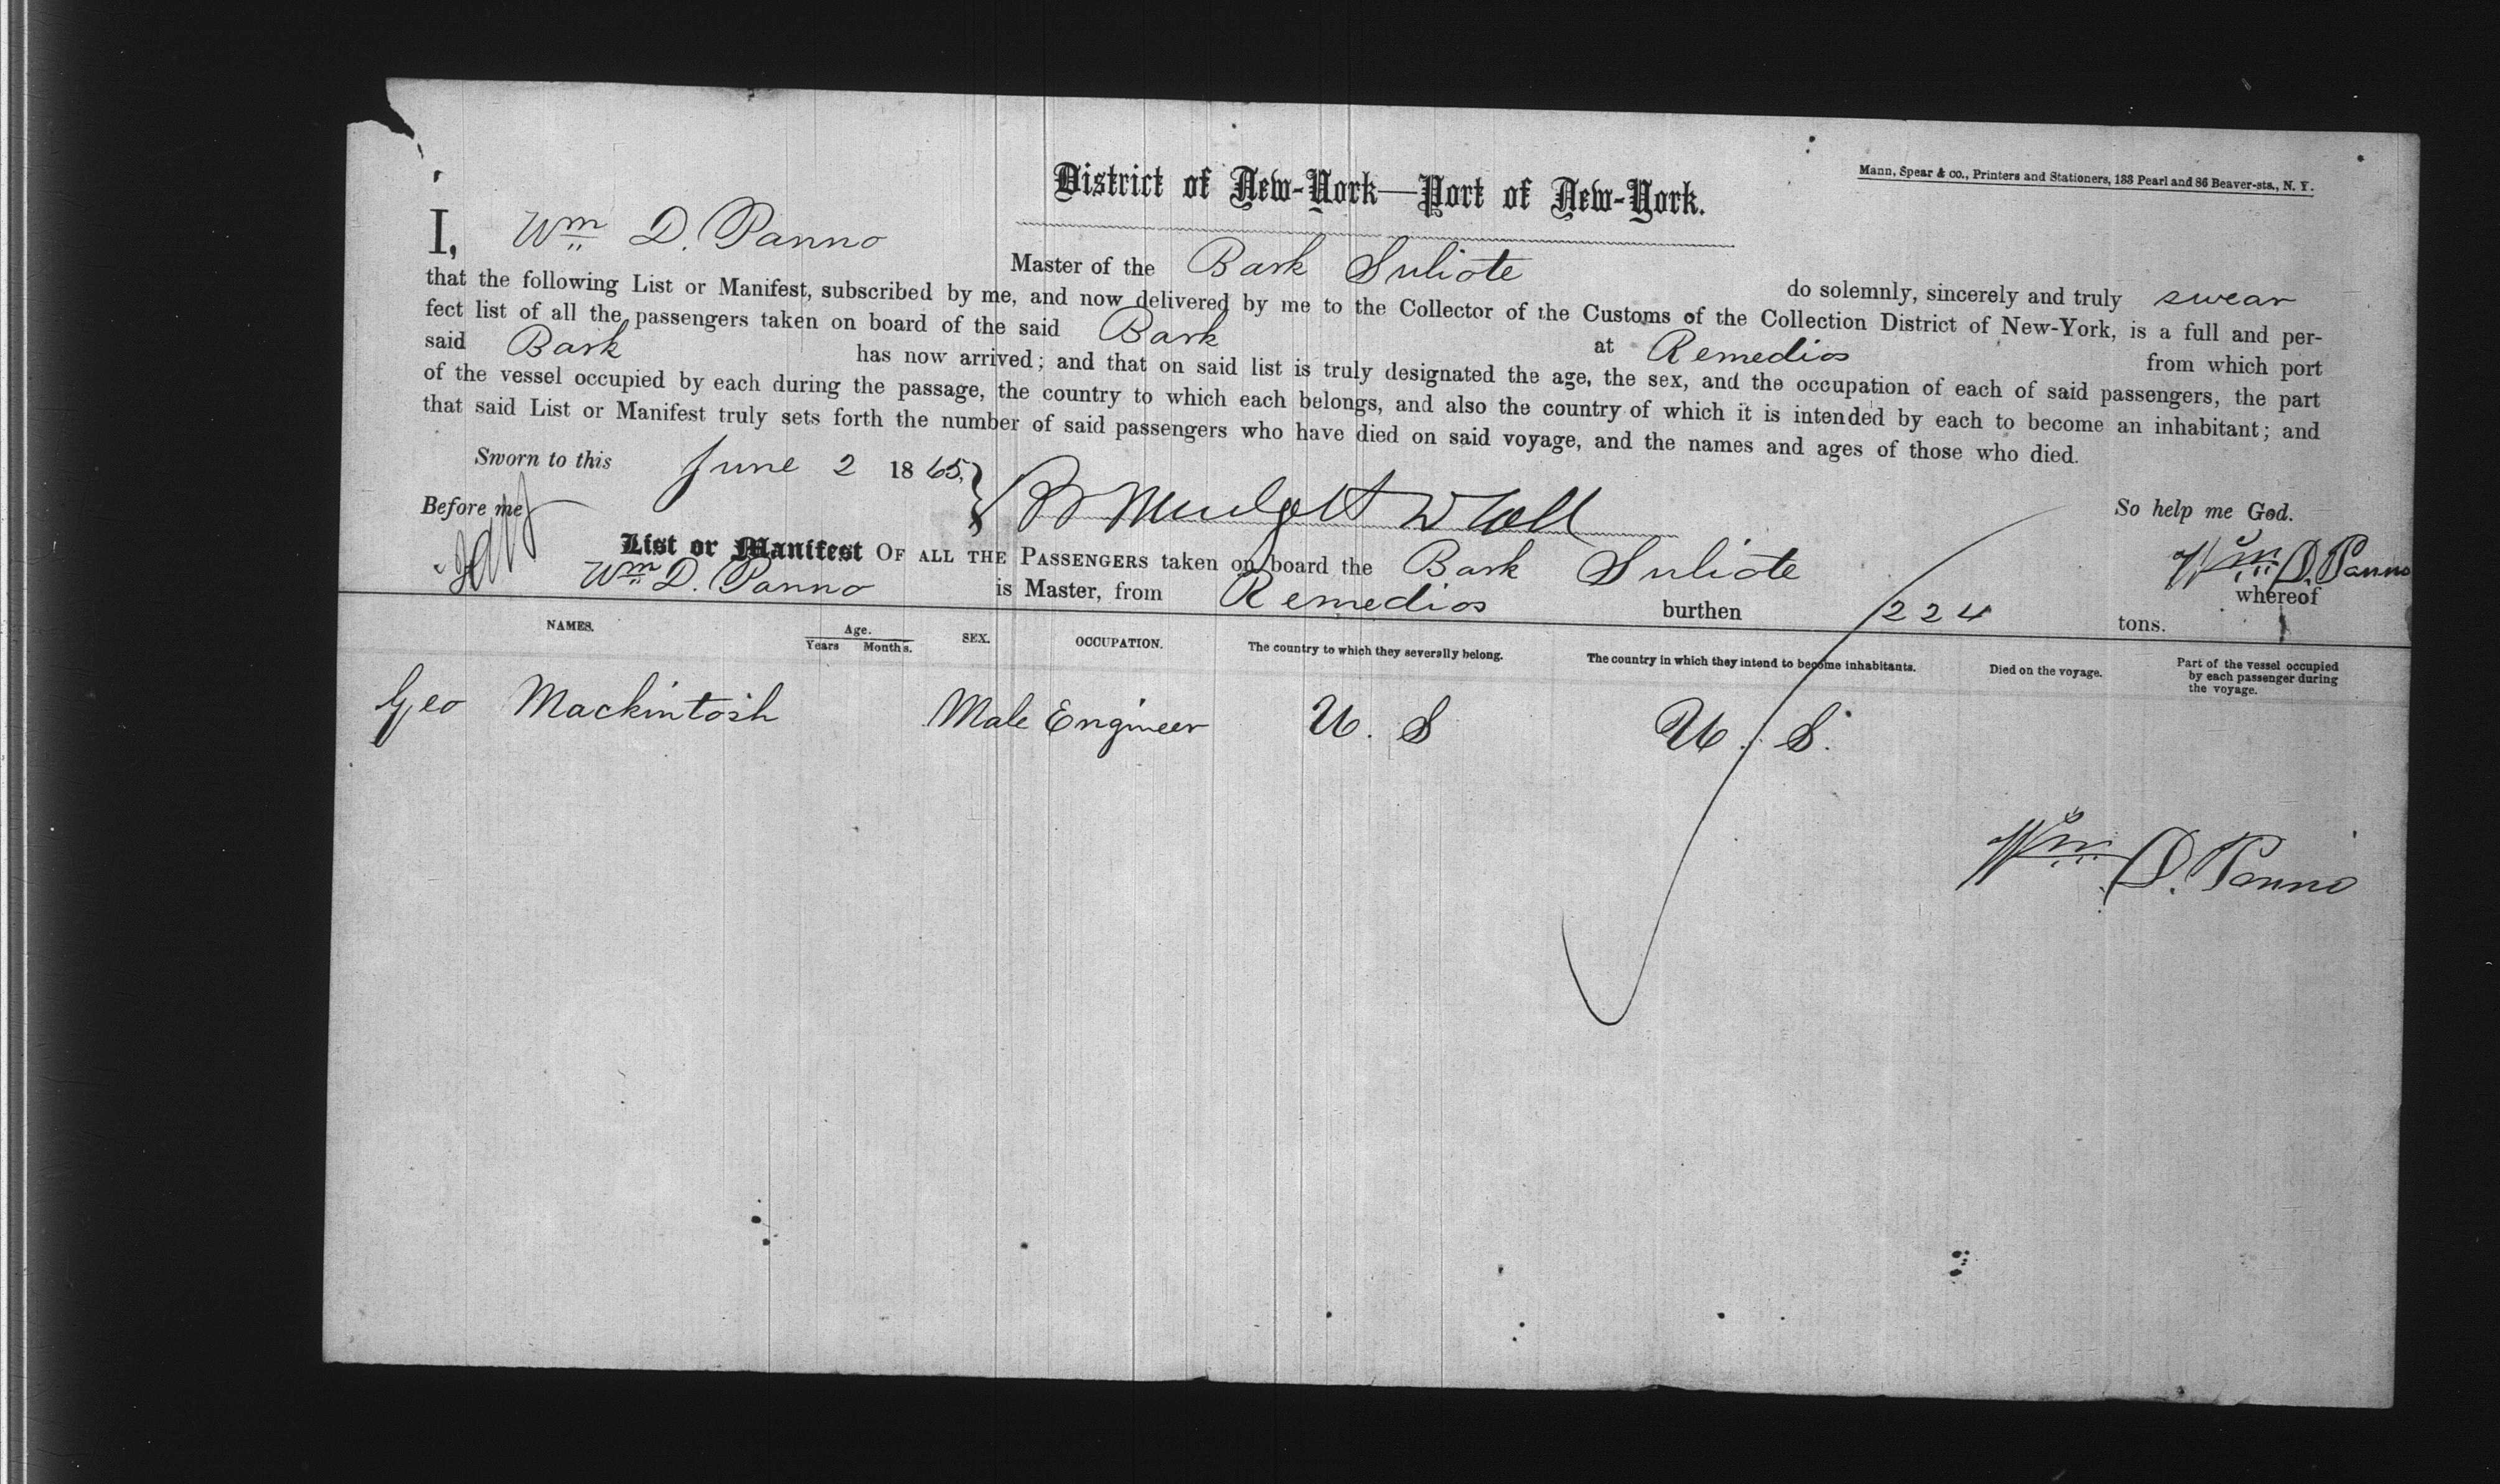 Mann, Spear & co., Printers and Stationers, 133 Pearl and 86 Beaver-sts., N. Y.
District of New-York—Port of New-York.
I, Wm D. Panno Master of the Bark Suliote do solemnly, sincerely and truly swear
that the following List or Manifest, subscribed by me, and now delivered by me to the Collector of the Customs of the Collection District of New-York, is a full and per-
fect list of all the passengers taken on board of the said Bark at Remedios from which port
said Bark has now arrived; and that on said list is truly designated the age, the sex, and the occupation of each of said passengers, the part
of the vessel occupied by each during the passage, the country to which each belongs, and also the country of which it is intended by each to become an inhabitant; and
that said List or Manifest truly sets forth the number of said passengers who have died on said voyage, and the names and ages of those who died.
Sworn to this June 2 1865, So help me God.
Before me Wm D. Panno
List or Manifest OF ALL THE PASSENGERS taken on board the Bark Suliote whereof
Wm D. Panno is Master, from Remedios burthen 224 tons.
NAMES. Age. Years Months. SEX. OCCUPATION. The country to which they severally belong. The country in which they intend to become inhabitants. Died on the voyage. Part of the vessel occupied by each passenger during the voyage.
Geo Mackintosh Male Engineer U. S U. S.
Wm D. Panno